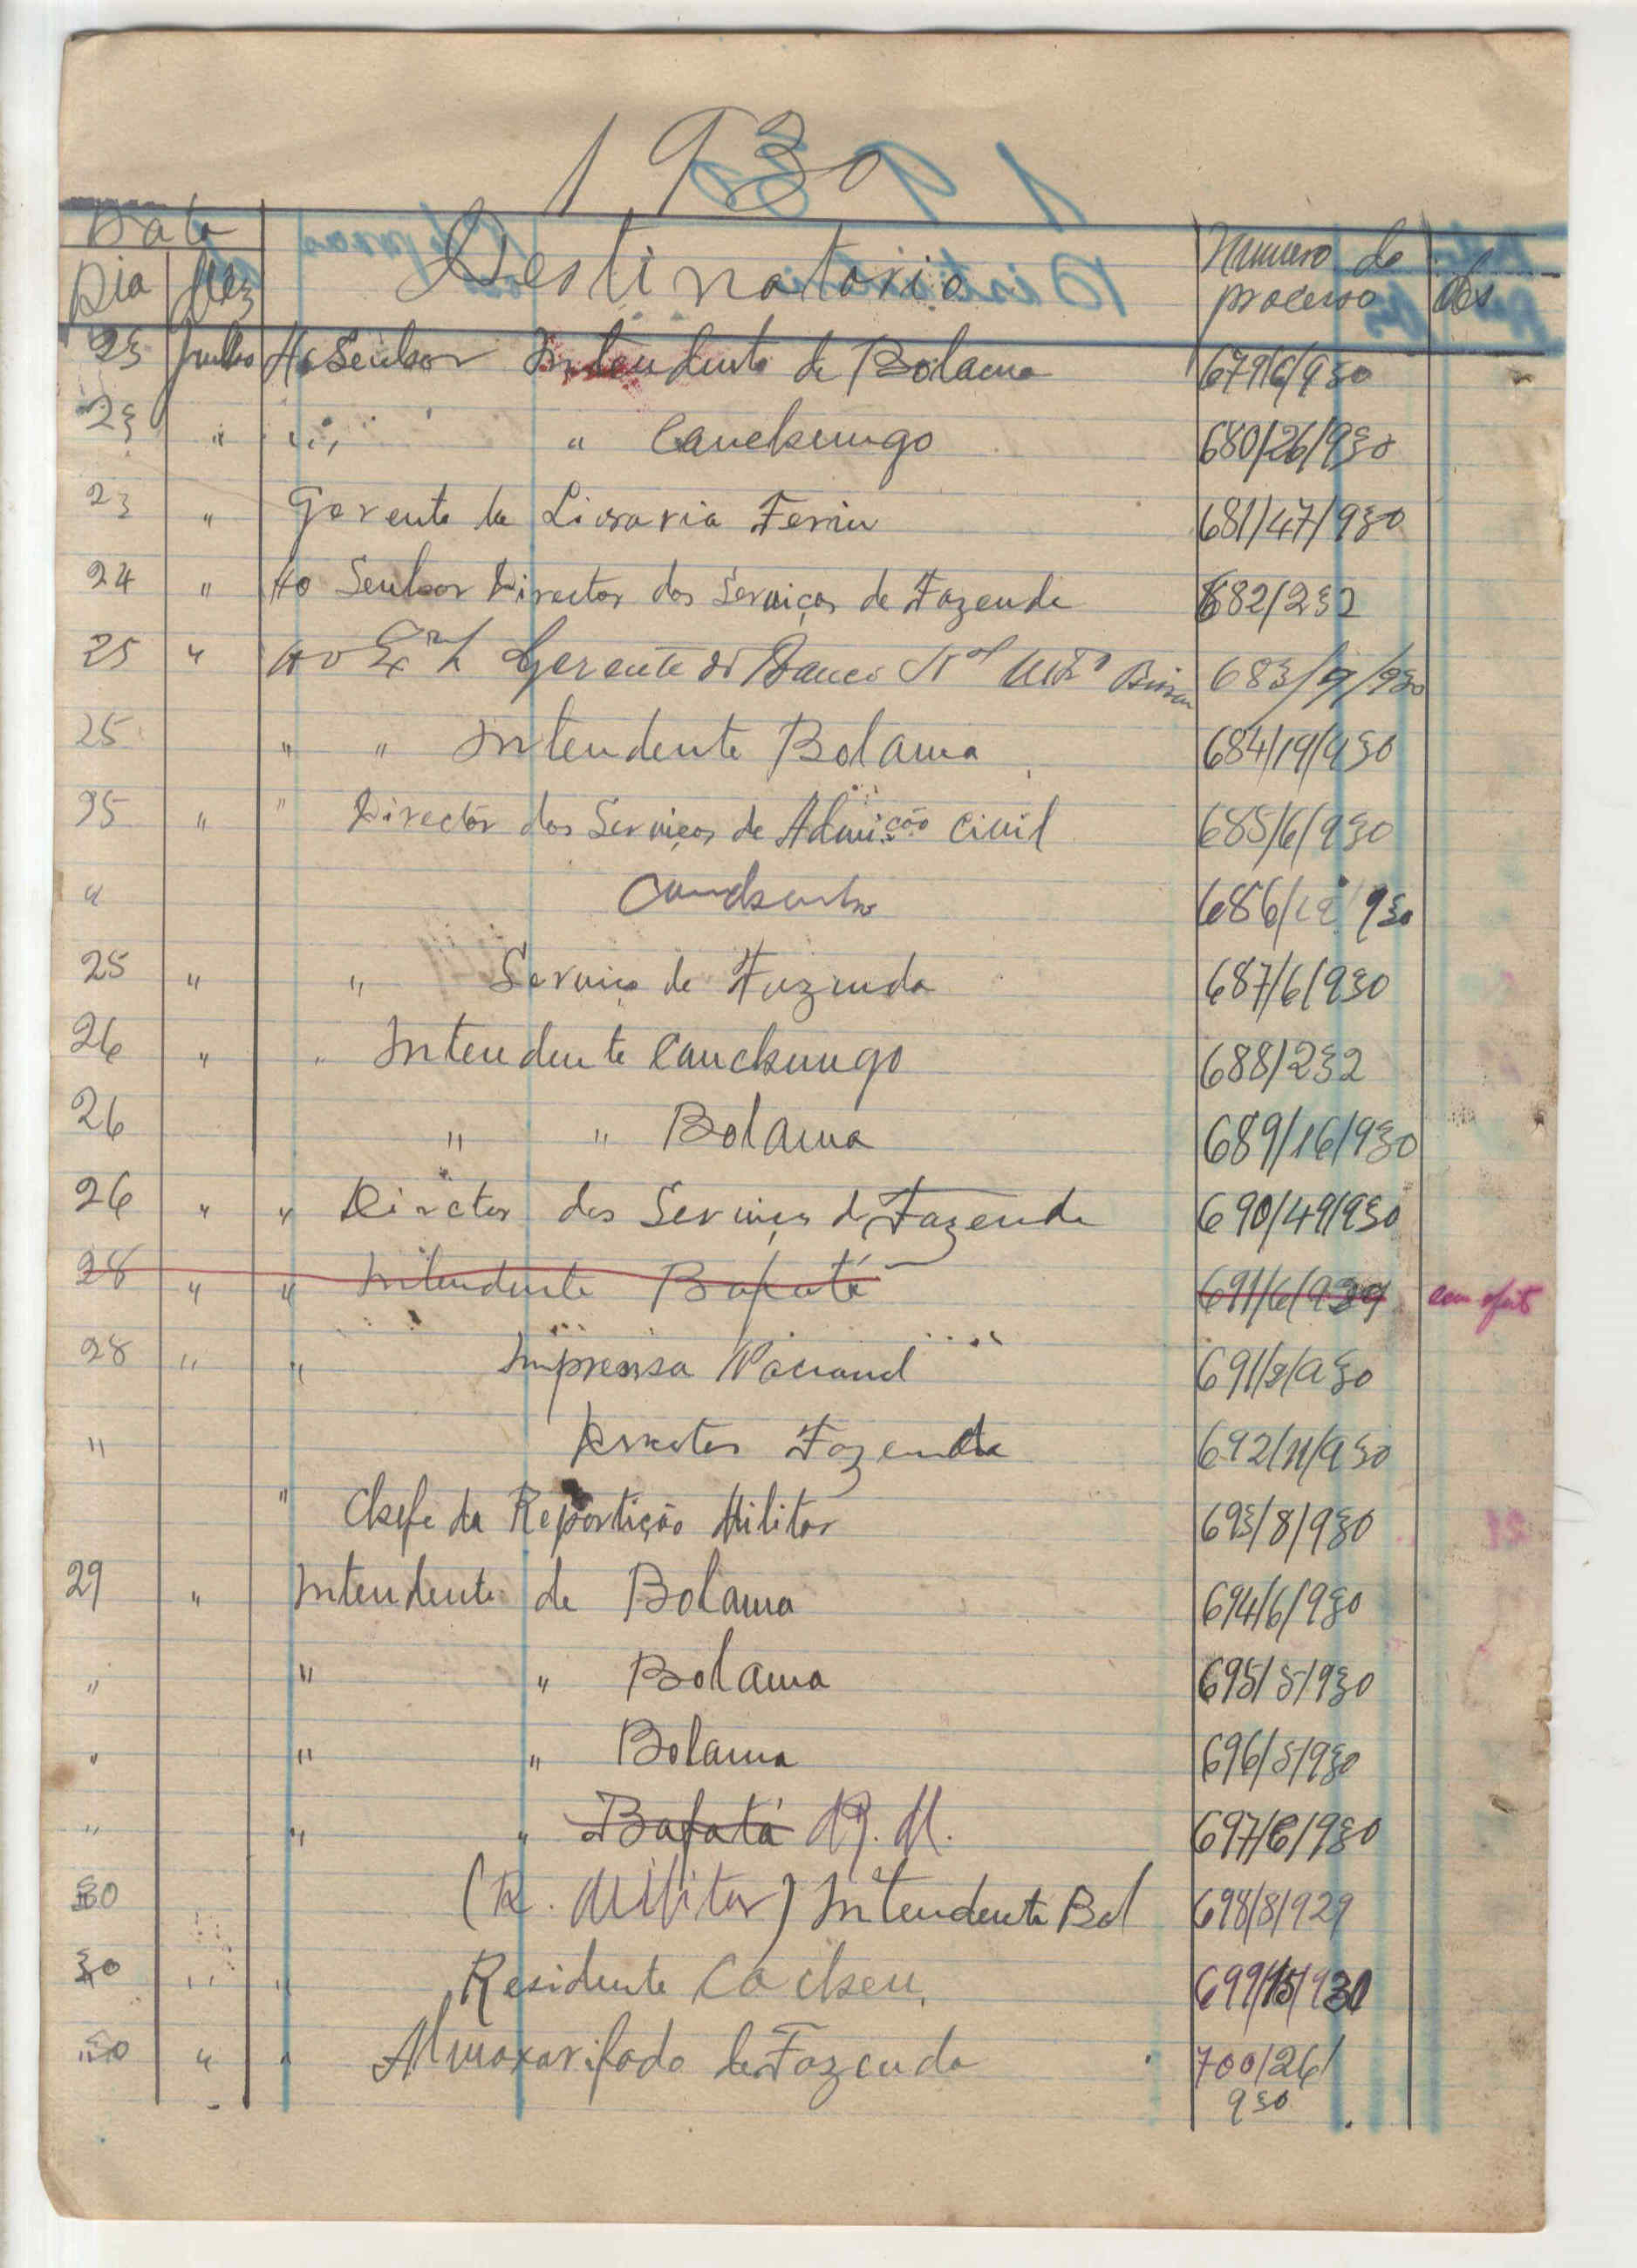 1930
Data
Dia Mez Destinatario Numero do processo Obs
23 Julho Ao Senhor Intendente de Bolama 679/6/930
23 " " " Canchungo 680/26/930
23 " Gerente da Livraria Ferin 681/47/930
24 " Ao Senhor Director dos Serviços de Fazenda 682/232
25 " Ao Gerente do Banco Nal Ultro 683/9/930
25 " " Intendente Bolama 684/19/930
25 " " Director dos Serviços de Admição Civil 685/6/930
" 686/ 930
25 " " Serviço de Fazenda 687/6/930
26 " " Intendente Canchungo 688/232
26 " " Bolama 689/16/930
26 " " Director dos Serviços de Fazenda 690/49/930
28 " " Intendente Bafatá 691/6/930
28 " " Imprensa Nacional 691/3/930
" Director Fazenda 692/11/930
" Chefe da Repartição Militar 693/8/930
29 " Intendente de Bolama 694/6/930
" " " Bolama 695/5/930
" " " Bolama 696/5/930
" " " Bafatá R. M. 697/6/930
30 (R. Militar) Intendente Bol 698/8/929
30 " " Residente Cacheu 699/15/930
30 " " Almoxarifado de Fazenda 700/26/
930